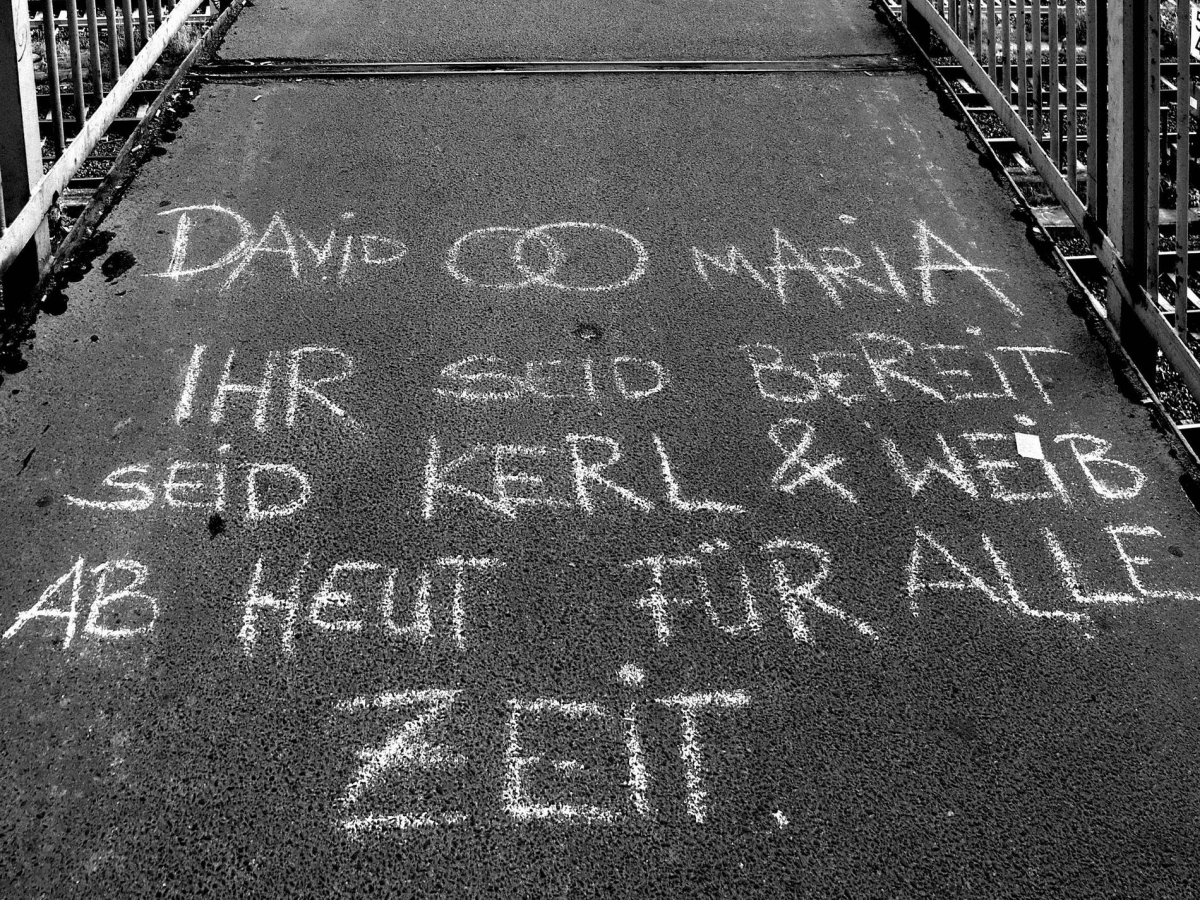 DAViD MARiA
IHR SEiD BEREiT
SEiD KERL & WEiB
AB HEUT FÜR ALLE
ZEiT.